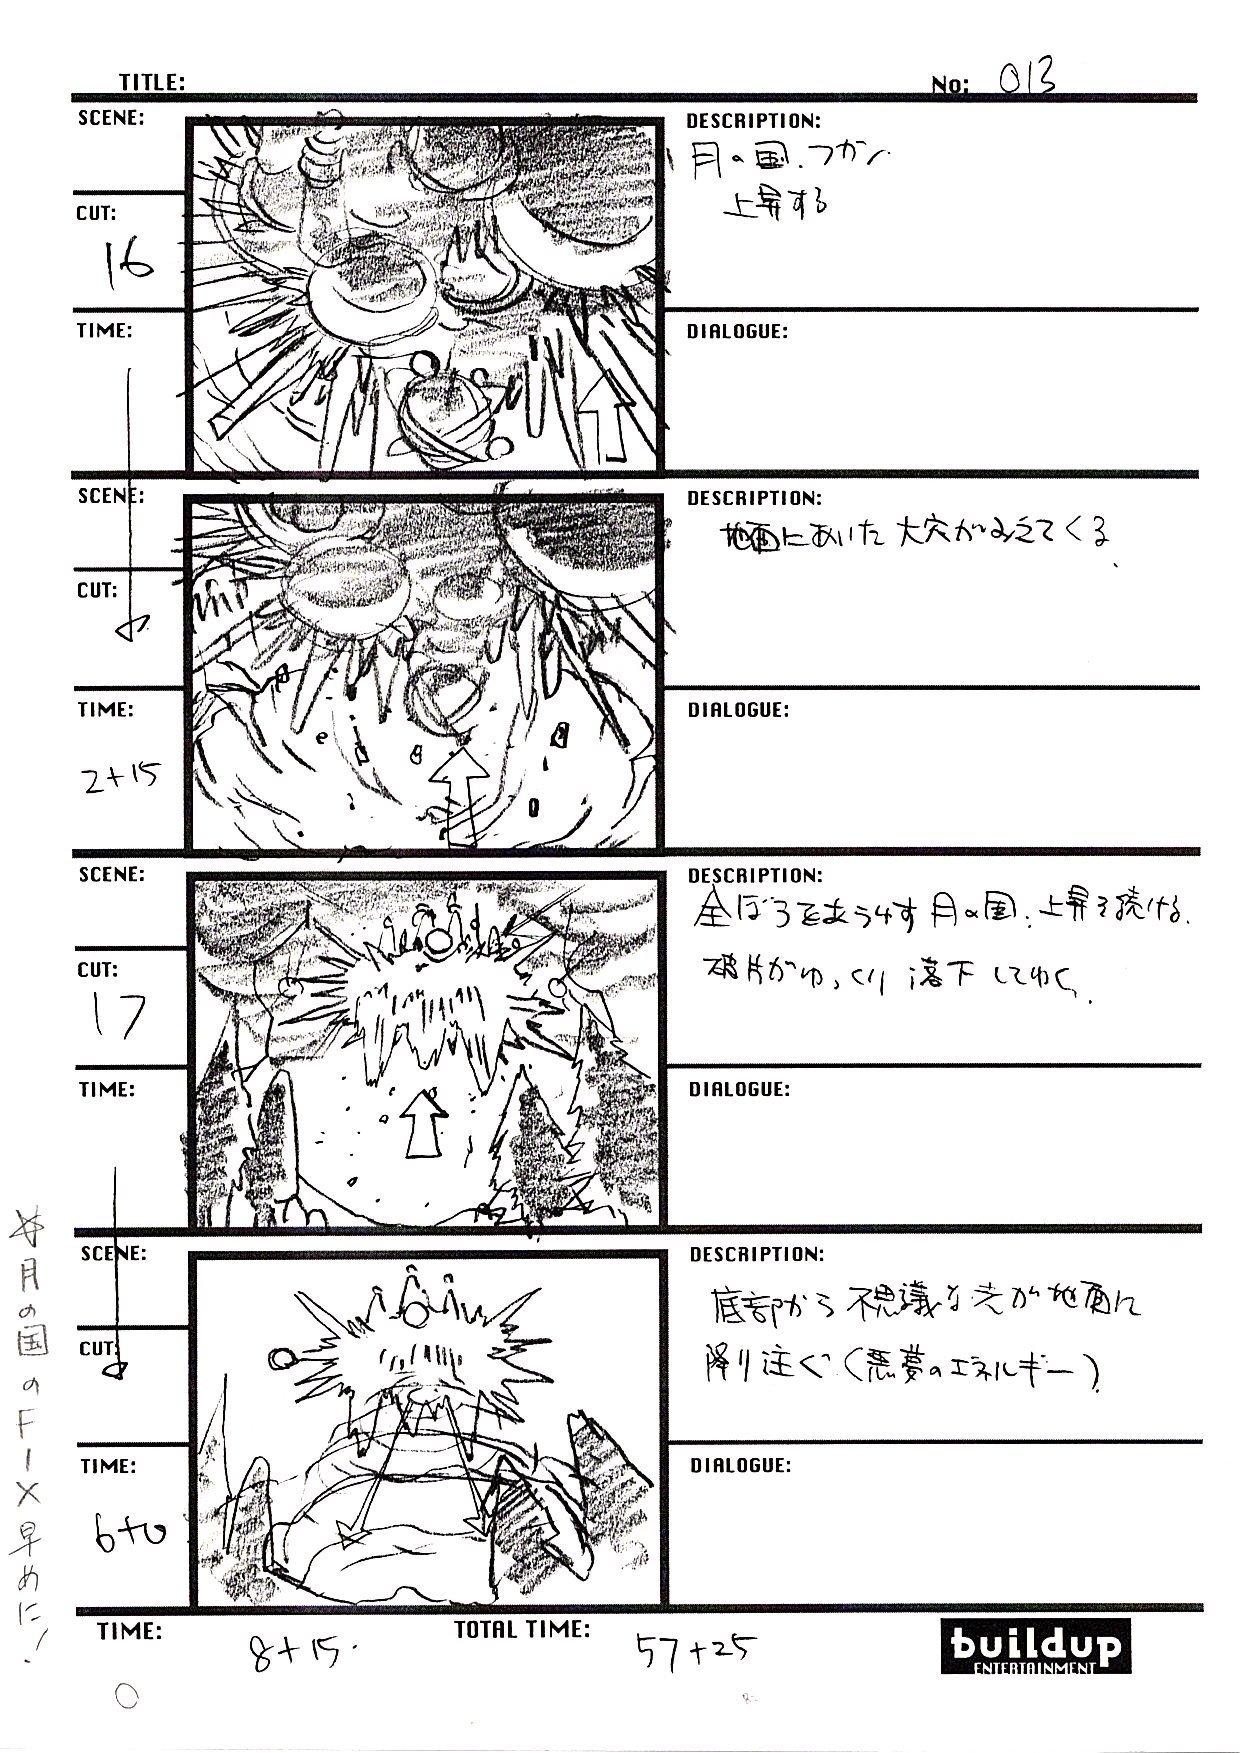 TITLE:
No: 013
SCENE:
CUT:
16
TIME:
DESCRIPTION:
月の国、フカン
上昇する
DIALOGUE:
SCENE:
CUT:
TIME:
2+15
DESCRIPTION:
地面にあいた大穴がみえてくる
DIALOGUE:
SCENE:
CUT:
17
TIME:
DESCRIPTION:
全ぼうをあらわす月の国、上昇を続ける。
破片がゆっくり落下してゆく。
DIALOGUE:
SCENE:
CUT:
TIME:
6+0
DESCRIPTION:
底部から不思議な光が地面に
降り注ぐ(悪夢のエネルギー)
DIALOGUE:
月の国のFIX早めに!
TIME:
8+15
TOTAL TIME:
57+25
buildup
ENTERTAINMENT